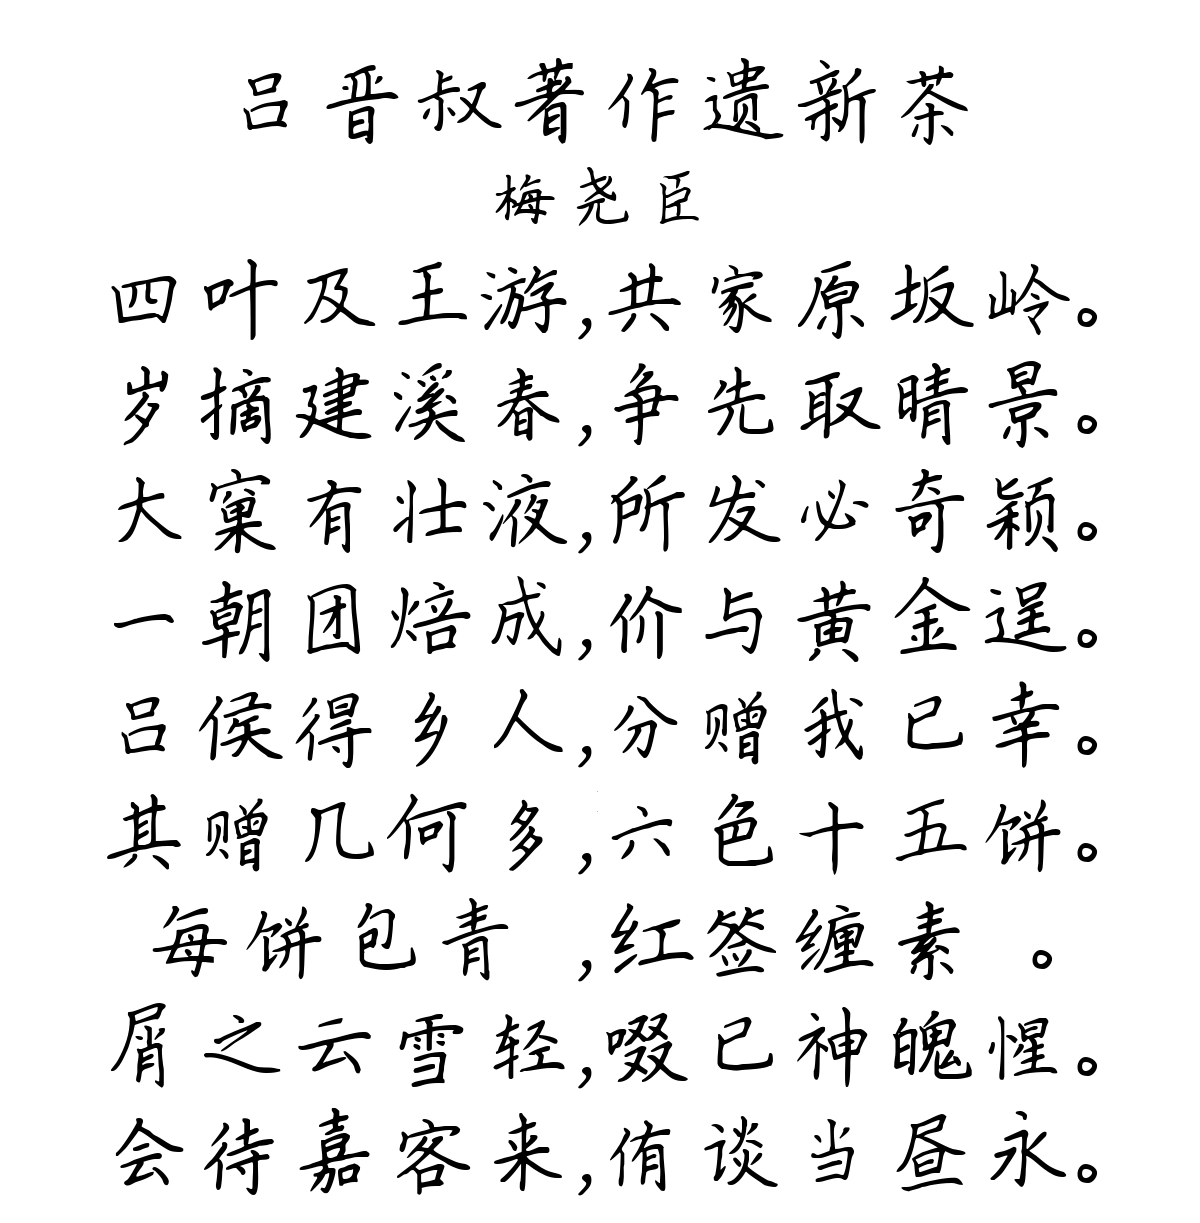 吕晋叔著作遗新茶
梅尧臣
四叶及王游,共家原坂岭。
岁摘建溪春,争先取晴景。
大窠有壮液,所发必奇颖。
一朝团焙成,价与黄金逞。
吕侯得乡人,分赠我已幸。
其赠几何多,六色十五饼。
每饼包青 ,红签缠素 。
屑之云雪轻,啜已神魄惺。
会待嘉客来,侑谈当昼永。